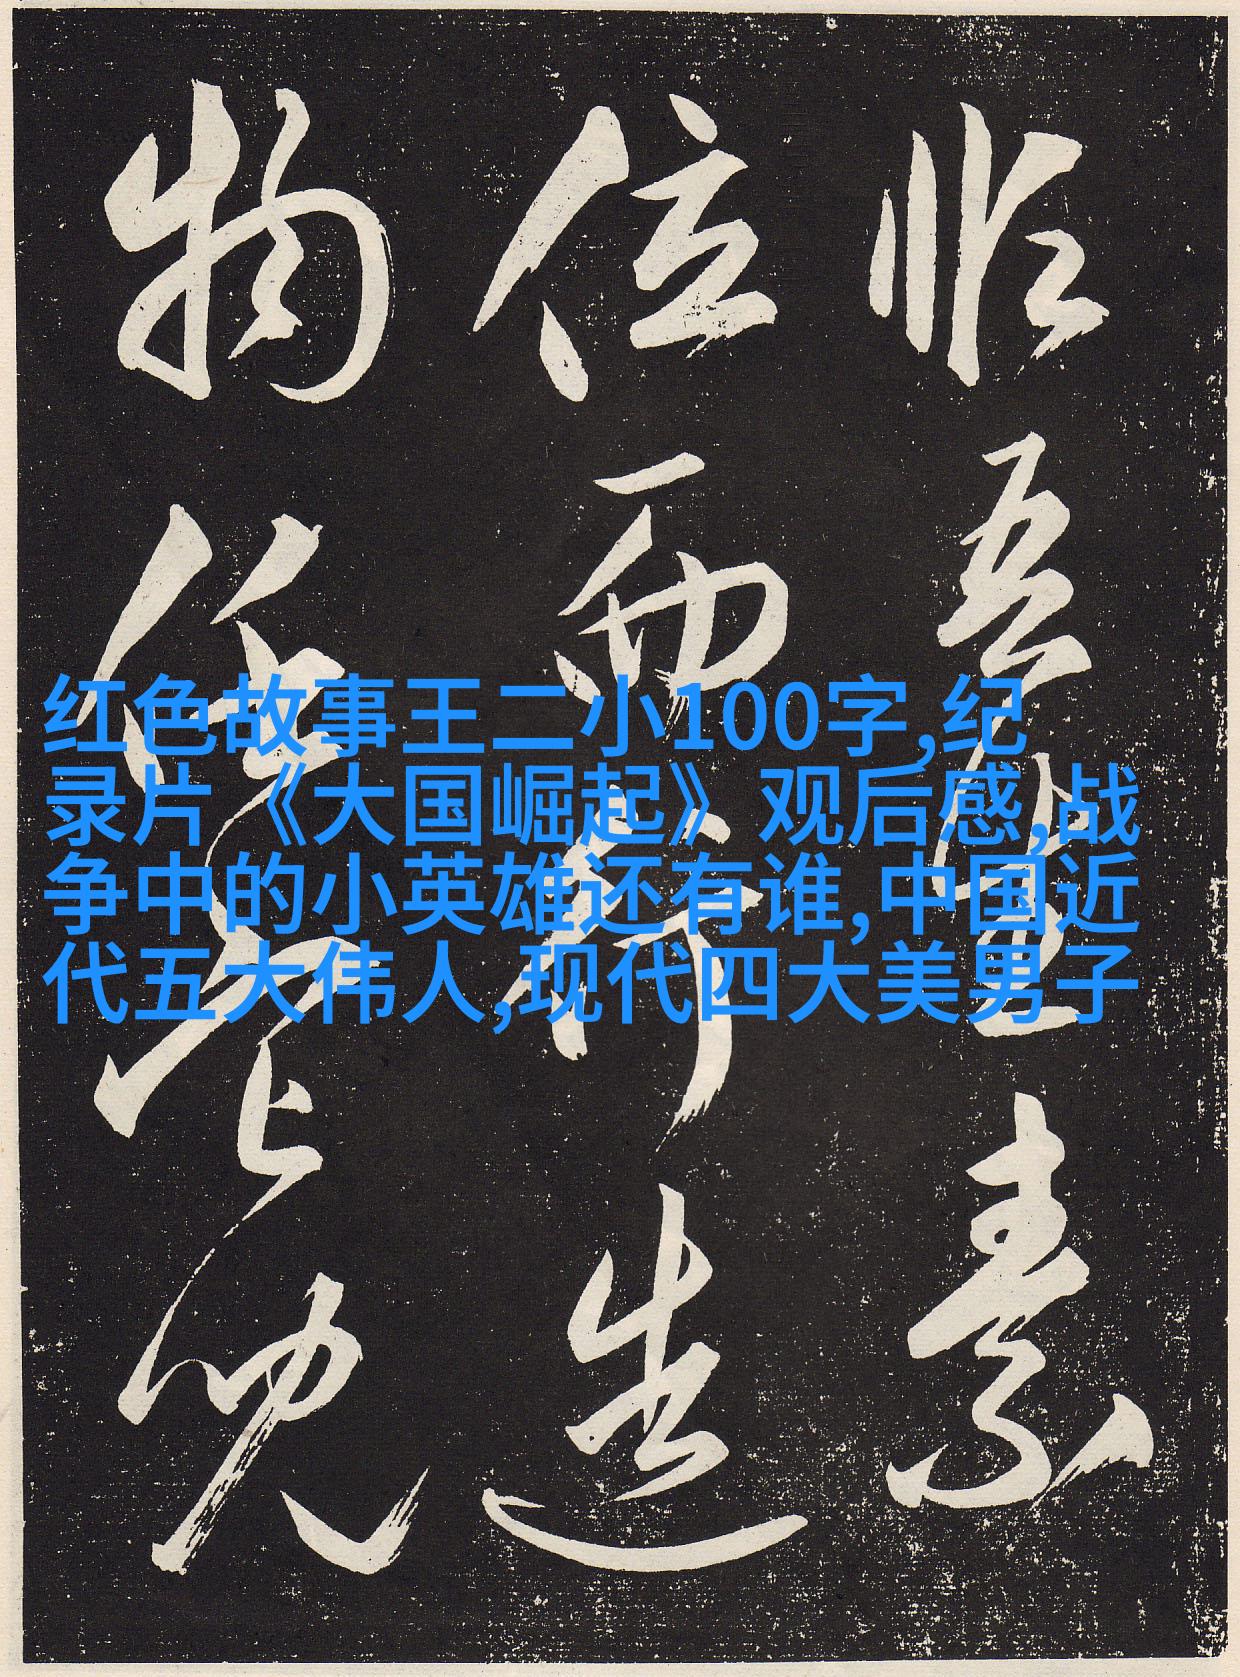 红色故事王二小100字,纪
录片《大国崛起》观后感,战
争中的小英雄还有谁,中国近
代五大伟人,现代四大美男子
吾素
位而行造
物任